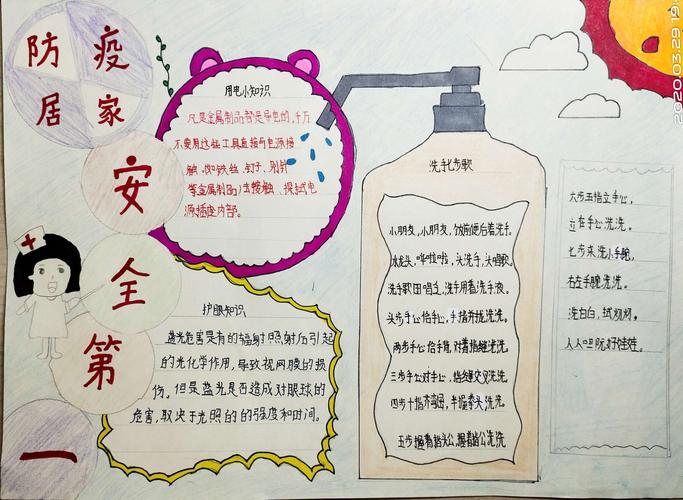 防疫
居家
安
全
第
一
用电小知识
凡是金属制品都是导电的,千万
不要用这些工具直接与电源接
触,如铁丝、钉子、别针
等金属制品去接触、探试电
源插座内部。
护眼知识
蓝光危害是有的辐射照射后引起
的光化学作用,导致视网膜的损
伤。但是蓝光是否造成对眼球的
危害,取决于光照的的强度和时间。
洗手七步歌
小朋友,小朋友,饭前便后着洗手。
水龙头,哗啦啦,头洗手,大唱歌。
洗手歌田唱立,洗手用着洗手液。
头步手心恰手心,手指并拢洗洗。
两步手心恰手背,对着指缝洗洗。
三步手心对手心,指缝交叉洗洗。
四步十指齐弯曲,半握拳头洗洗。
五步握着指头公,握着指公洗洗
六步五指立手心,
立在手心洗洗。
七步来洗小手腕,
右左手腕洗洗。
洗白白,
人人
好娃娃。
2020.03.29 19: